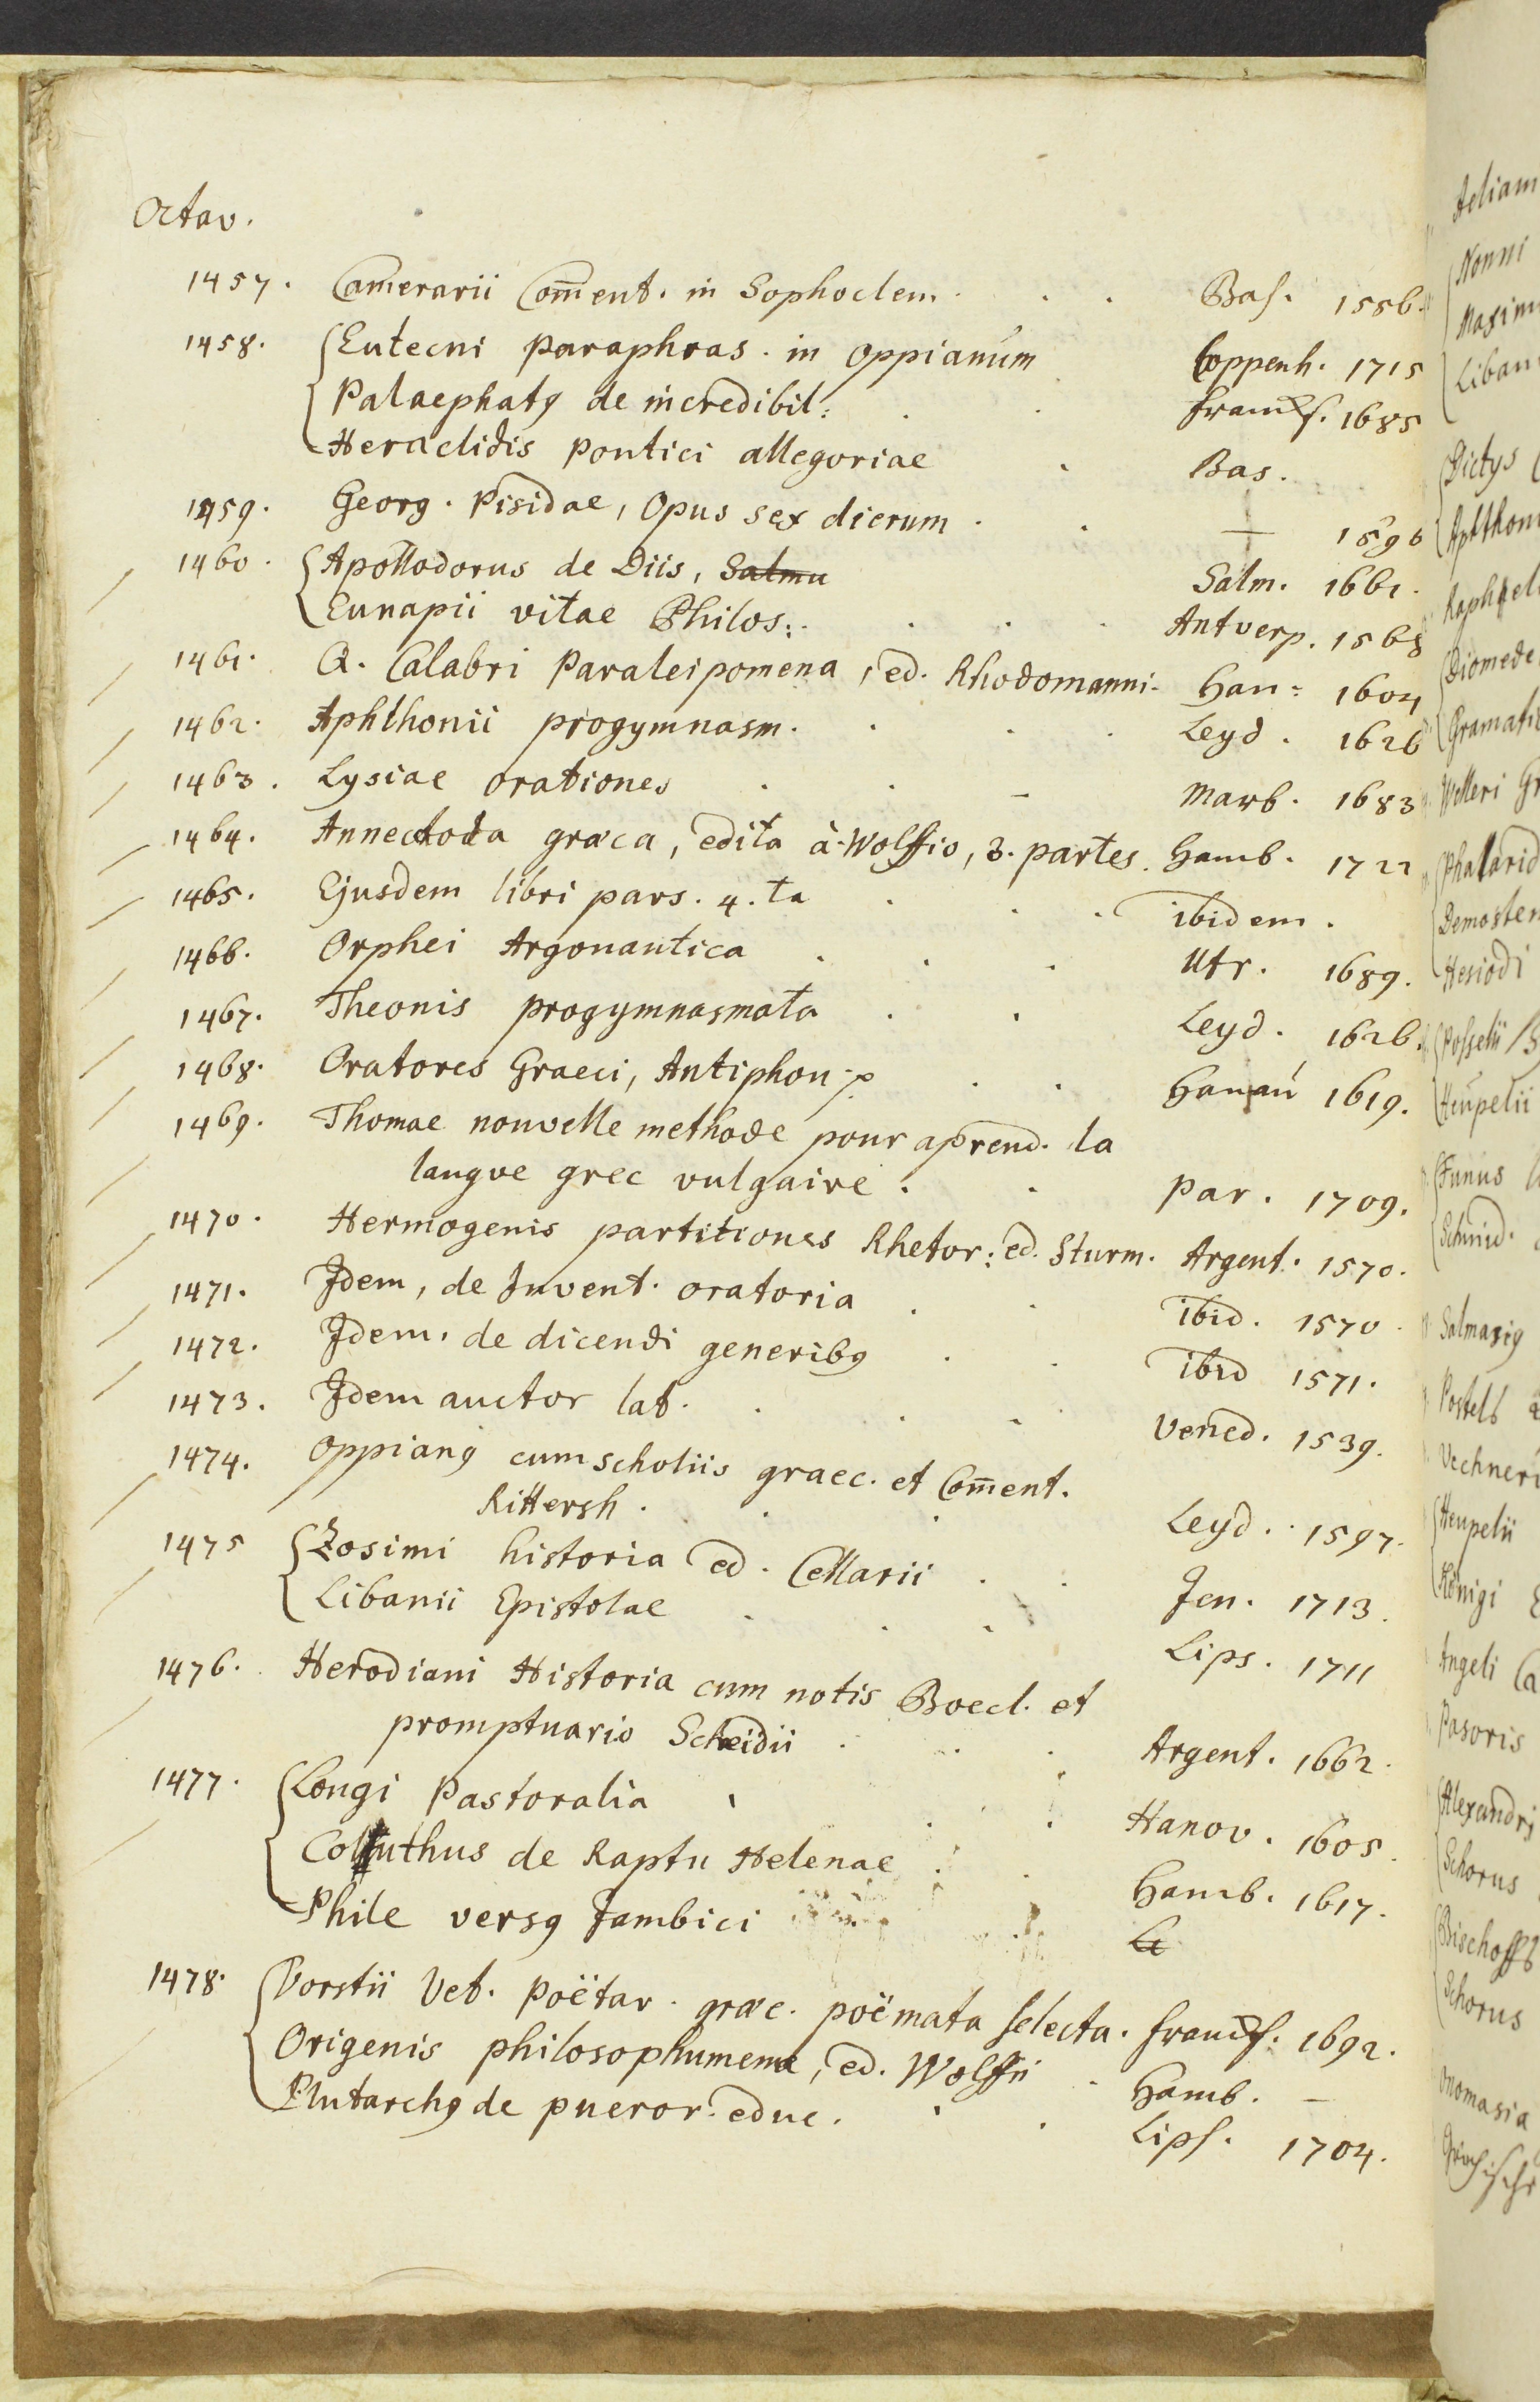 Octav.
1457. Camerarii Com̄ent. in Sophoclem . . . Bas. 1556.
1458. Eutecni paraphras. in Oppianum . Coppenh. 1715
Palaephatꝰ de incredibil: . . Francf. 1685
Heraclidis Pontici allegoriae . Bas.
1459. Georg. Pisidae, Opus sex dierum . . — 1596
1460. Apollodorus de Diis, Salmu Salm. 1661.
Eunapii vitae Philos: . . . Antverp. 1568
1461. Q. Calabri Paraleipomena, ed. Rhodomanni. Han: 1604
1462. Aphthonii progymnasm. . . . Leyd. 1626
1463. Lysiae orationes . . - Marb. 1683
1464. Annectoda græca, edita à Wolffio, 3. partes. Hamb. 1722
1465. Ejusdem libri pars. 4.ta . . . ibidem.
1466. Orphei Argonautica . . . Utr. 1689.
1467. Theonis progymnasmata . . Leyd. 1626.
1468. Oratores Graeci, Antiphon . . Hanau 1619.
1469. Thomae nouvelle methode pour aprend. la
langve grec vulgaire . . par. 1709.
1470. Hermogenis partitiones Rhetor: ed. Sturm. Argent. 1570.
1471. Idem, de Invent. oratoria . . ibid. 1570.
1472. Idem, de dicendi generibꝰ . . ibid 1571.
1473. Idem auctor lat. . . . Vened. 1539.
1474. Oppianꝰ cum scholiis graec. et Com̄ent.
Rittersh. . . Leyd. 1597.
1475 Zosimi historia ed. Cellarii . . Jen. 1713.
Libanii Epistolae . . . Lips. 1711
1476. Herodiani Historia cum notis Boecl. et
promptuario Scheidii . . . Argent. 1662.
1477. Longi Pastoralia . . . Hanov. 1605.
Colluthus de Raptu Helenae . . Hamb. 1617.
Phile versꝰ Jambici
1478. Vorstii Vet. Poëtar. græc. poëmata selecta. Francf. 1692.
Origenis philosophumena, ed. Wolffii . Hamb. —
Plutarchꝰ de pueror. educ. . . Lips. 1704.
Aelian
Nonni
Maxim
Liban
Dictys
Aphthon
Raphel
Diomede
Gramati
Welleri Gr
Phalarid
Demosten
Hesiodi
Posselii
Heupelii
Funus
Schmid.
Salmasiꝰ
Postell
Vechneri
Heupelii
Königi
Angeli Ca
Pasoris
Alexandri
Schorus
Bischoff
Schorus
Onomasia